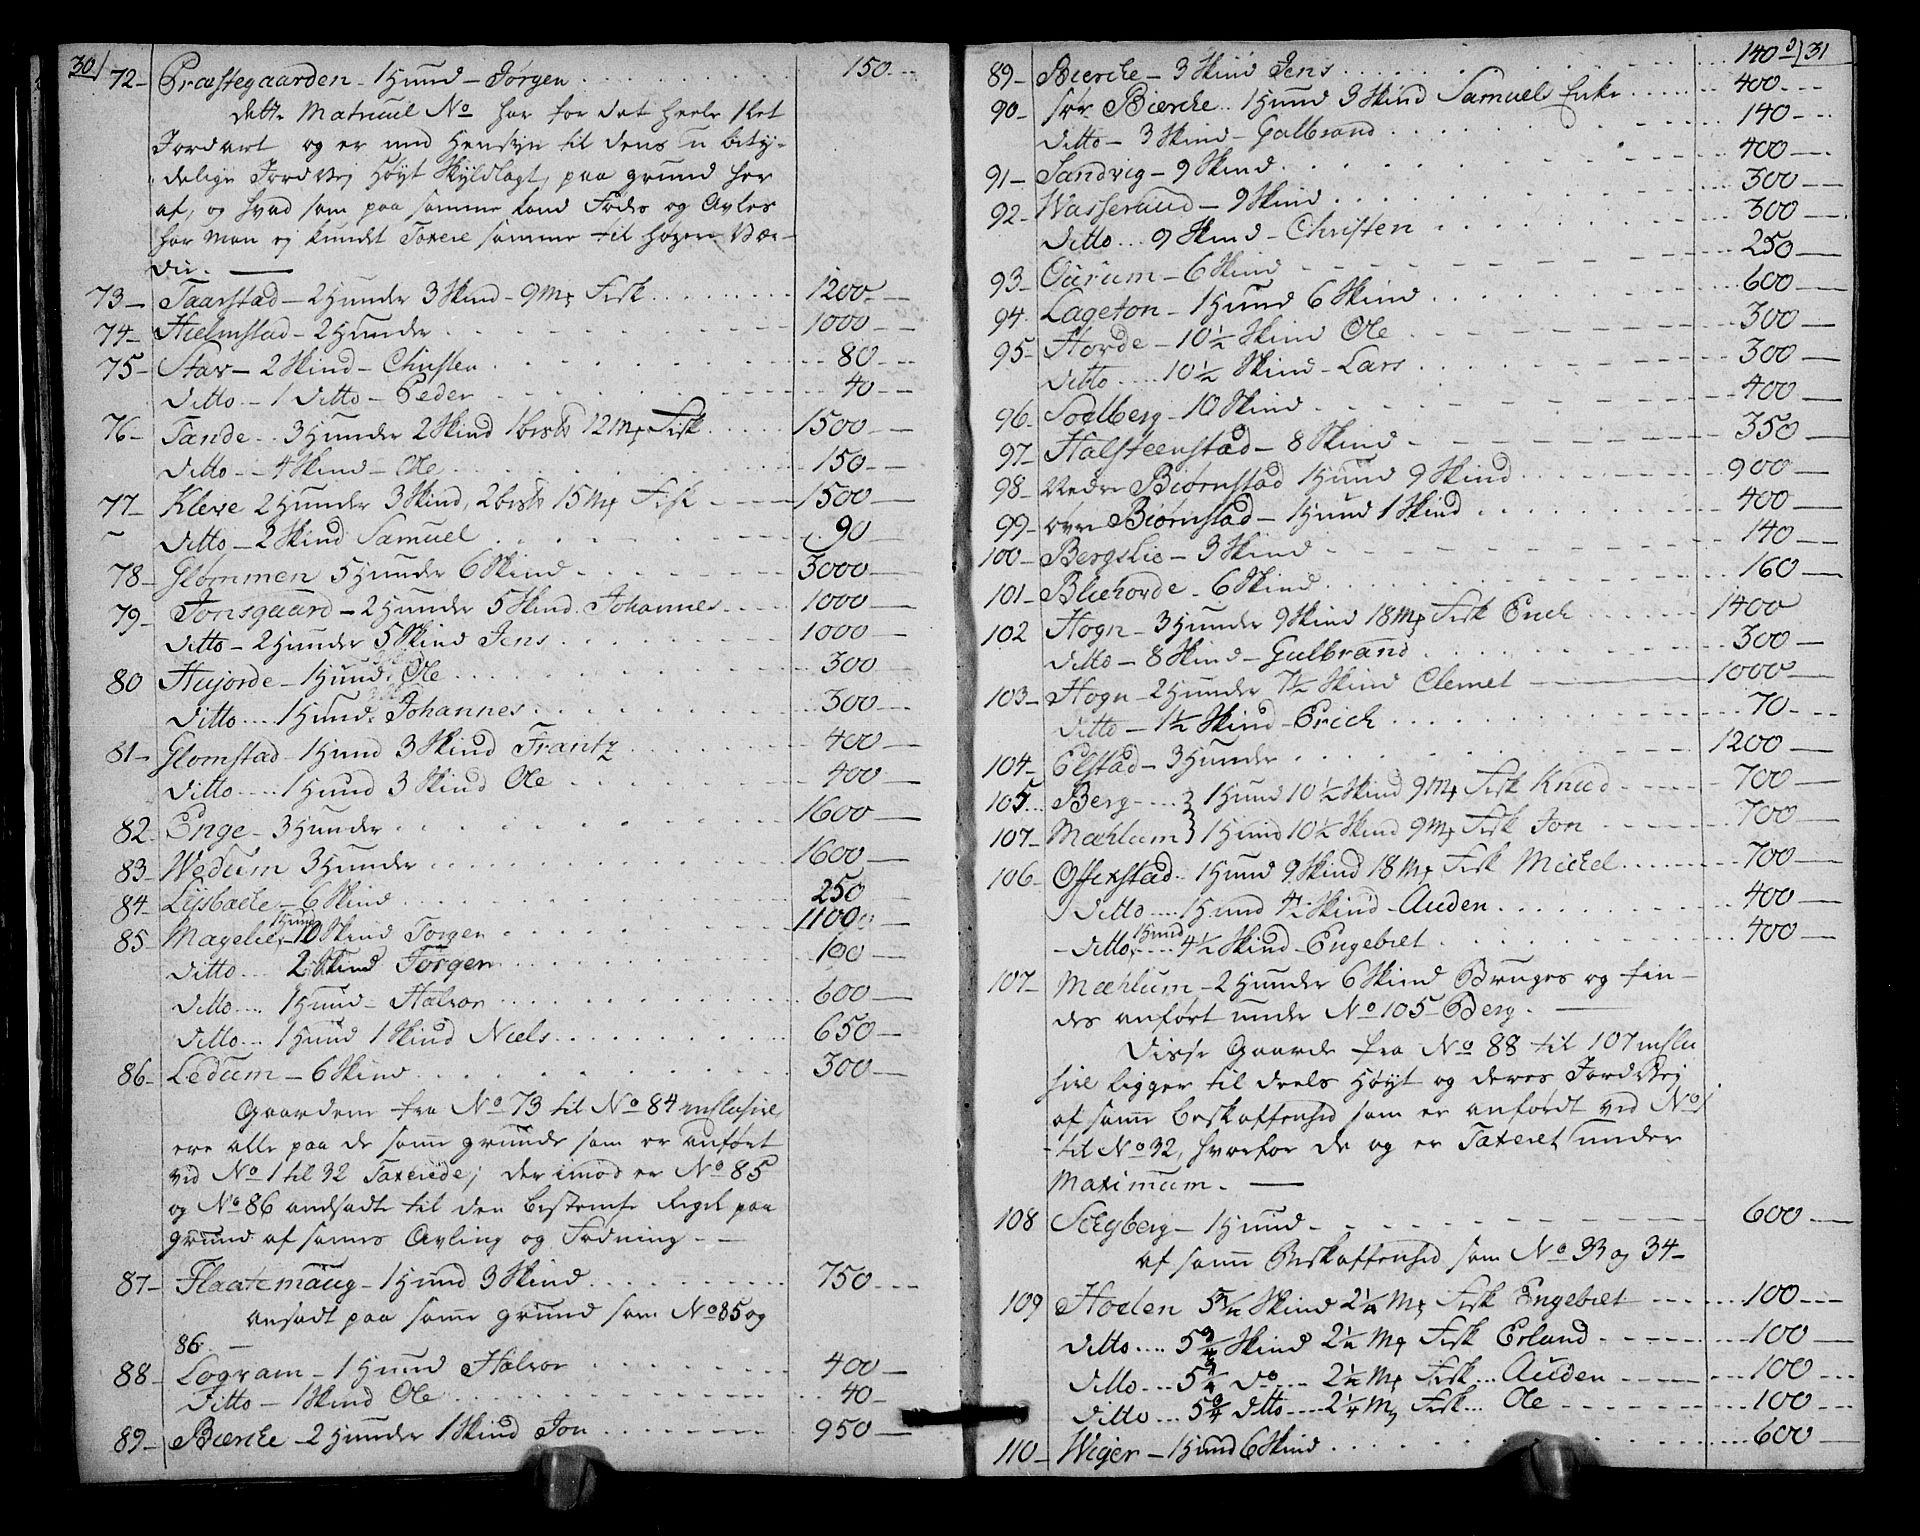 30/
72 - Præstegaarden - 1 Hund - Jørgen . . . 150 . - -
dette Matricul No har for det heele slet
Jordart og er med Hensyn til dens u bity-
delige Jordvej Høyt Skyldlagt, paa grund her
af, og hvad som paa samme kand Födes og Avles
har Man ej kundet Taxere samme til høyere Vær-
die. —
73 - Taarstad - 2 Hunder 3 Skind - 9 Mk Fisk . . . 1200 . -
74 - Hielmstad - 2 Hunder . . . 1000 - -
75 - Stav - 2 Skind - Christen . . . 80 . - -
Ditto - 1 Ditto - Peder . . . 40 . - -
76 - Tande . . 3 Hunder 2 Skind 12 Mk Fisk . . . 1500 - -
Ditto - 4 Skind - Ole . . . 150 - -
77 - Kleve 2 Hunder 3 Skind, 15 Mk Fisk - - - 1500 —
- Ditto - 2 Skind Samuel . . . 90 —
78 - Glømmen 5 Hunder 6 Skind . . . 3000 —
79 - Jonsgaard - 2 Hunder 5 Skind . Johannes . . . 1000 —
Ditto - 2 Hunder 5 Skind Jens . . . 1000 —
80 Hujorde - 1 Hund . Ole . . . 300 —
Ditto . . . 1 Hund . Johannes . . . 300 - -
81 - Glomstad - 1 Hund 3 Skind Frantz . . . 400 —
Ditto . . . 1 Hund 3 Skind Ole . . . 400 —
82 - Enge - 3 Hunder . . . 1600 —
83 - Wedum 3 Hunder . . . 1600 —
84 - Lysbache - 6 Skind . . . 250 —
85 Magelie, 1 Hund 10 Skind Jørgen . . . 1100 —
Ditto . . 2 Skind Jørgen . . . 100 —
Ditto . . . 1 Hund - Halvor . . . 600 —
Ditto . . . 1 Hund 1 Skind Niels . . . 650 —
86 - Ledum - 6 Skind . . . 300 —
Gaardene fra No 73 til No 84 inclusive
ere alle paa de samme grunde som er anført
vid No 1 til 32 Taxerede; derimod er No 85
og No 86 andsadte til den bestemte Regel paa
grund af sames Avling og Fødning . - —
87 - Flaatemoug - 1 Hund 3 Skind . . . 750 . - -
ansadt paa samme grund som No 85 og
86. —
88 - Logram - 1 Hund Halvor . . . 400 —
Ditto - 1 Skind Ole . . . 40 . —
89 - Bierche - 2 Hunder 1 Skind Jon . . . 950 —
31
89 - Bierche - 3 Skind Jens . . . 140
90 - Sør Bierche . . 1 Hund 3 Skind Samuels Enke . . . 400 - -
Ditto - 3 Skind - Gulbrand . . . 140 - -
91 - Sandvig - 9 Skind . . . 400 —
92 - Wasserud - 9 Skind . . . 300 —
Ditto . . . 9 Skind - Christen . . . 300 —
93 - Ourum - 6 Skind . . . 250 —
94 . Lageton - 1 Hund 6 Skind . . . 600 —
95 - Horde - 10 1/2 Skind Ole . . . 300 —
Ditto . . . 10 1/2 Skind - Lars . . . 300 —
96 - Soelberg - 10 Skind . . . 400 —
97 - Halsteenstad - 8 Skind . . . 350 —
98 - Nedre Biørnstad 1 Hund 9 Skind . . . 900 —
99 - øvre Biørnstad - 1 Hund 1 Skind . . . 400 —
100 - Bergslie - 3 Skind . . . 140 —
101 - Bliehorde - 6 Skind . . . 160 —
102 Hogn - 3 Hunder 9 Skind 18 Mk Fisk Erich . . . 1400
Ditto - 8 Skind - Gulbrand . . . 300 —
103 - Hogn - 2 Hunder 7 1/2 Skind Clemet — 1000 —
Ditto - 1 1/2 Skind - Erich . . . 70 - - -
104 - Elstad - 3 Hunder . . . 1200 —
105 . . Berg . . . } 1 Hund 10 1/2 Skind 9 Mk Fisk Knud - - - 700 —
107 - Mæhlum } 1 Hund 10 1/2 Skind 9 Mk Fisk Jon . . . 700 —
106 - Offerstad . . 1 Hund 9 Skind 18 Mk Fisk Michel . . . 700 —
Ditto . . . 1 Hund 4 1/2 Skind - Auden . . . 400 —
- Ditto, 1 Hund 4 1/2 Skind - Engebret . . . 400 —
107 - Mæhlum - 2 Hunder 6 Skind Bruges og fin-
des anført under No 105 - Berg. —
Disse Gaarde fra No 88 til 107 inclu
sive ligger til deels Høyt og deres Jordvej
af samme beskaffenhed som er anfördt vid No 1
til No 32, hvorfor de og er Taxeret under
Maximum. —
108 Seegberg - 1 Hund . . . 600 —
af samme Beskaffenhed som No 33 og 34 -
109 Hoelen 5 3/4 Skind 2 1/4 Mk Fisk Engebret - - - 100 - -
Ditto . . . 5 3/4 Skind 2 1/4 Mk Fisk Erland - - - 100 —
Ditto . . . 5 3/4 do . . . 2 1/4 Mk Fisk . . Auden - - - 100 - -
Ditto . . . 5 3/4 Ditto . . . 2 1/4 Mk Fisk . . Ole - - - 100 - -
110 - Wiger - 1 Hund 6 Skind . . . 600 —